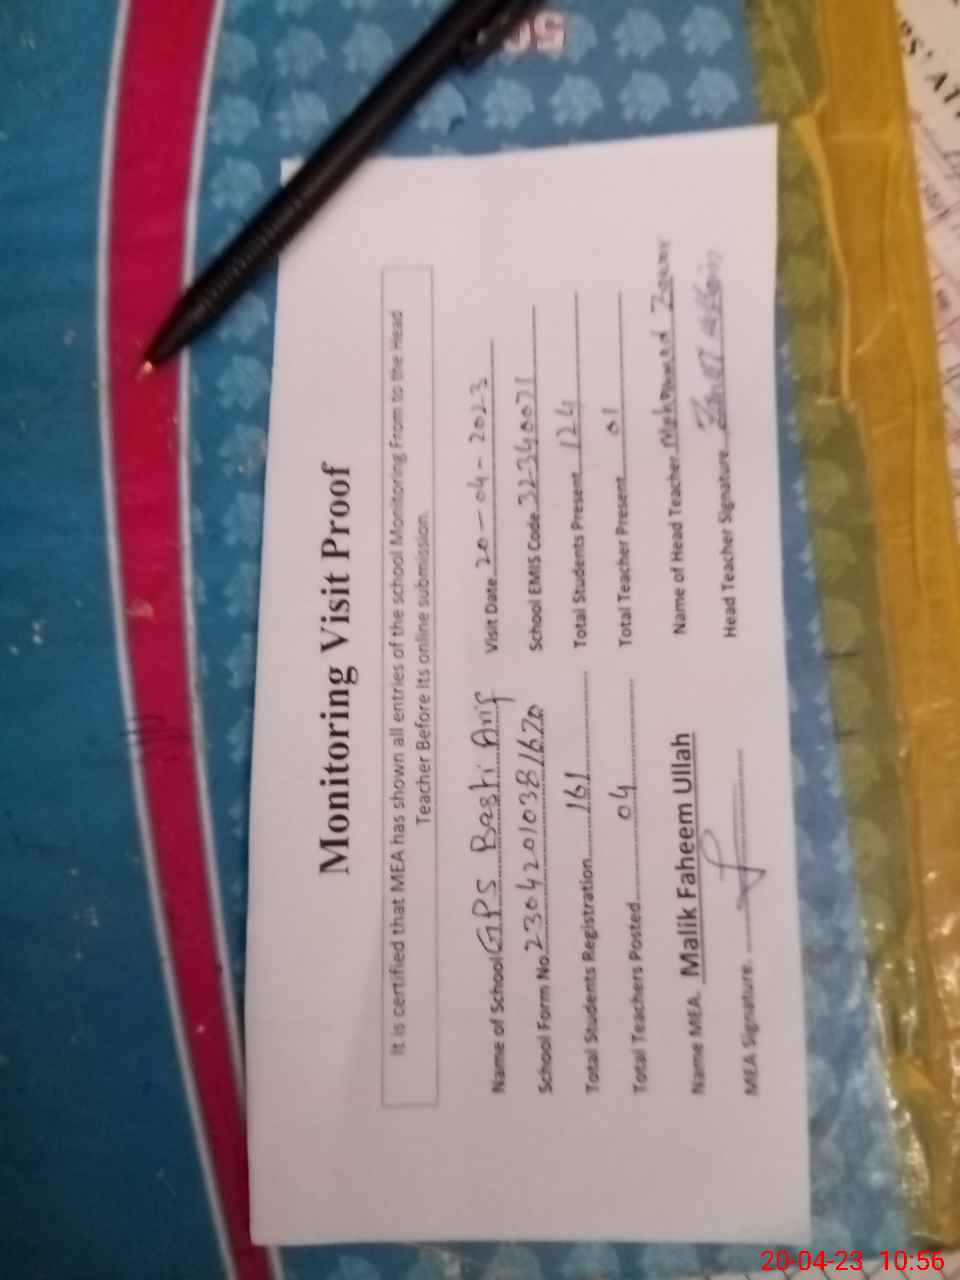 Monitoring Visit Proof
It is certified that MEA has shown all entries of the school Monitoring From to the Head
Teacher Before Its online submission.
Name of School GPS Basti Arif Visit Date 20-04-2023
School Form No. 23042010381620 School EMIS Code. 32340071
Total Students Registration 161 Total Students Present 124
Total Teachers Posted 04 Total Teacher Present 01
Name MEA. Malik Faheem Ullah Name of Head Teacher
MEA Signature. Head Teacher Signature
20-04-23 10:56